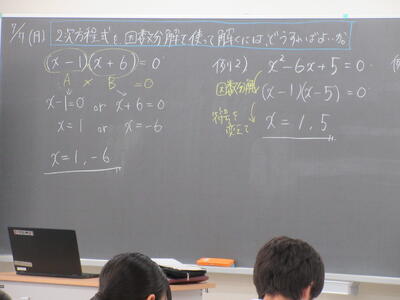 7/7(月) 2次方程式を因数分解を使って解くにはどうすればよいか。
(x-1)(x+6)=0
A × B =0
x-1=0 or x+6=0
x=1 or x=-6
x=1,-6
例2) x²-6x+5=0
因数分解
(x-1)(x-5)=0
符号を
変えて
x=1,5